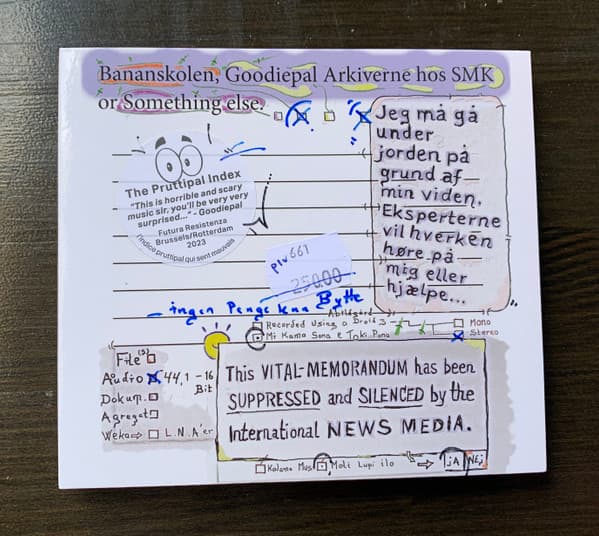 Bananskolen, Goodiepal Arkiverne hos SMK
or Something else.
Jeg må gå
under
jorden på
grund af
min viden.
Eksperterne
vil hverken
høre på
mig eller
hjælpe...
The Pruttipal Index
"This is horrible and scary
music sir, you'll be very very
surprised..." - Goodiepal
Futura Resistenza
Brussels/Rotterdam
2023
l'indice pruttipal qui sent mauvais
plv661
250.00
- ingen Penge kun Bytte
Recorded Using a Droid 3
Mono
Mi Kama Sona e Toki Pona
Stereo
File(s)
Audio 44,1 -16
Bit
Dokum.
Agregat
Weka⇒ L.N.A'er
This VITAL-MEMORANDUM has been
SUPPRESSED and SILENCED by the
International NEWS MEDIA.
Kalama Musi Moli Lupi ilo ⇒ JA NEJ